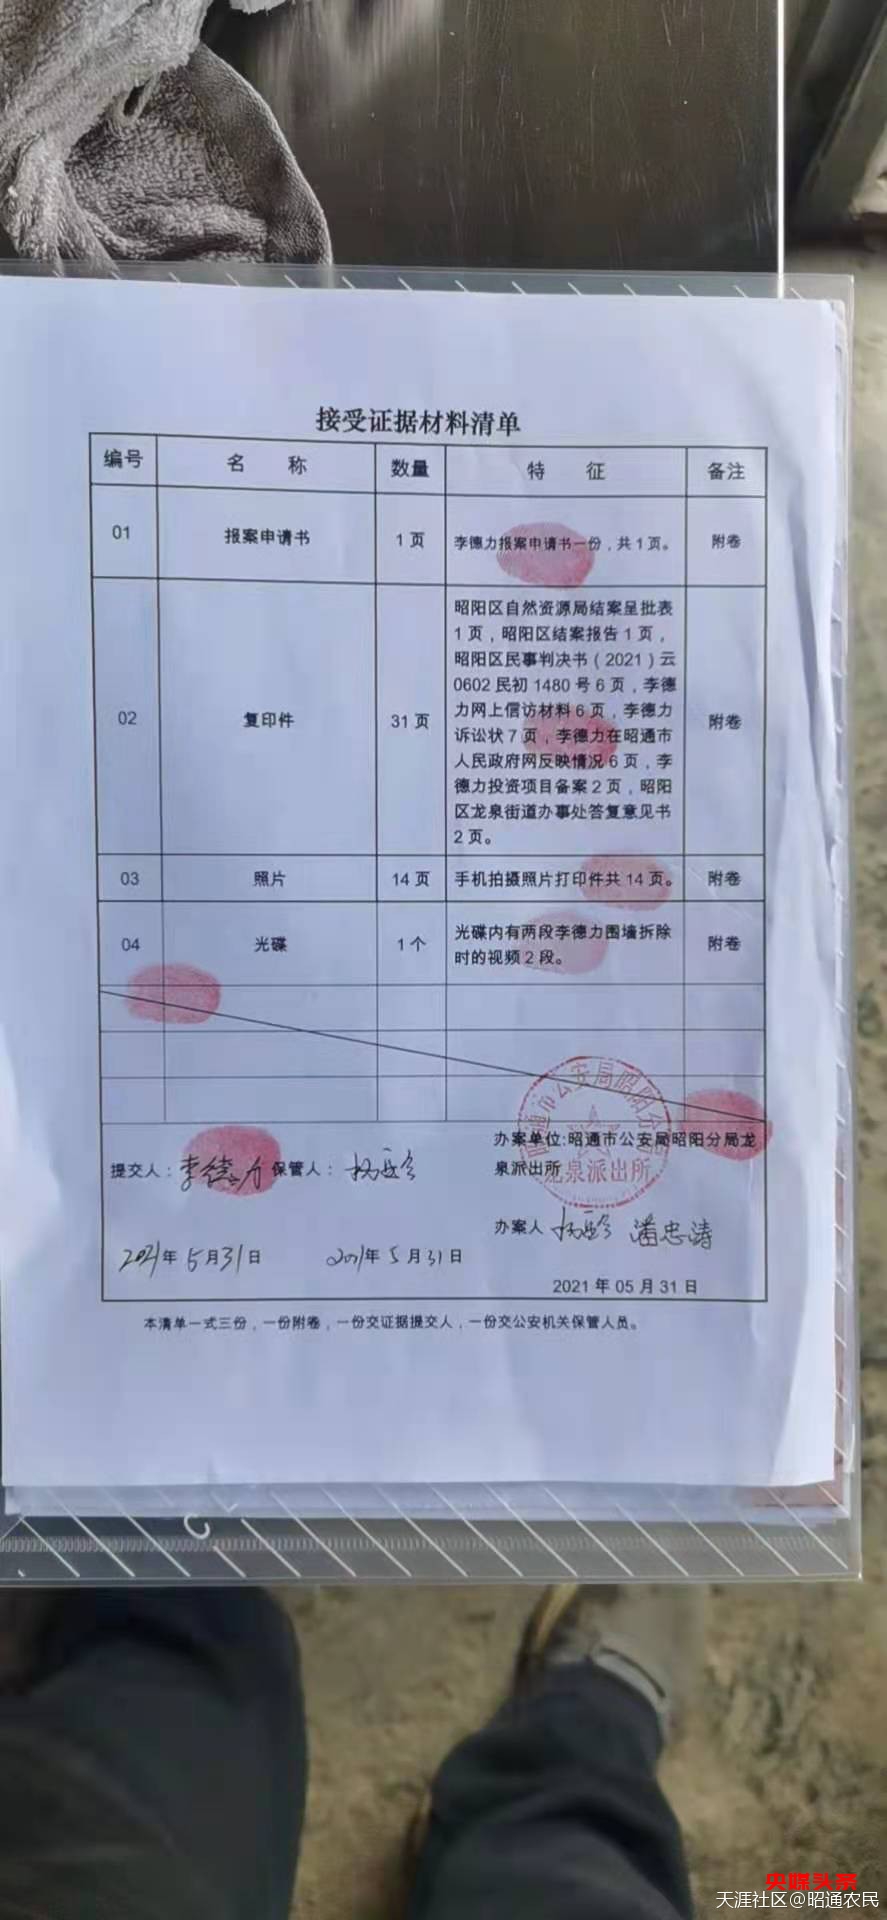 接受证据材料清单
编号 名 称 数量 特 征 备注
01 报案申请书 1 页 李德力报案申请书一份，共 1 页。 附卷
昭阳区自然资源局结案呈批表
1 页，昭阳区结案报告 1 页，
昭阳区民事判决书（2021）云
0602 民初 1480 号 6 页，李德
力网上信访材料 6 页，李德力
02 复印件 31 页 诉讼状 7 页，李德力在昭通市 附卷
人民政府网反映情况 6 页，李
德力投资项目备案 2 页，昭阳
区龙泉街道办事处答复意见书
2 页。
03 照片 14 页 手机拍摄照片打印件共 14 页。 附卷
04 光碟 1 个 光碟内有两段李德力围墙拆除 附卷
时的视频 2 段。
昭通市公安局昭阳分局
龙泉派出所
办案单位:昭通市公安局昭阳分局龙
泉派出所
提交人：李德力 保管人：
办案人 潘忠涛
2021年 5月31日 2021年 5月31日
2021 年 05 月 31 日
本清单一式三份，一份附卷，一份交证据提交人，一份交公安机关保管人员。
央媒头条
天涯社区@昭通农民